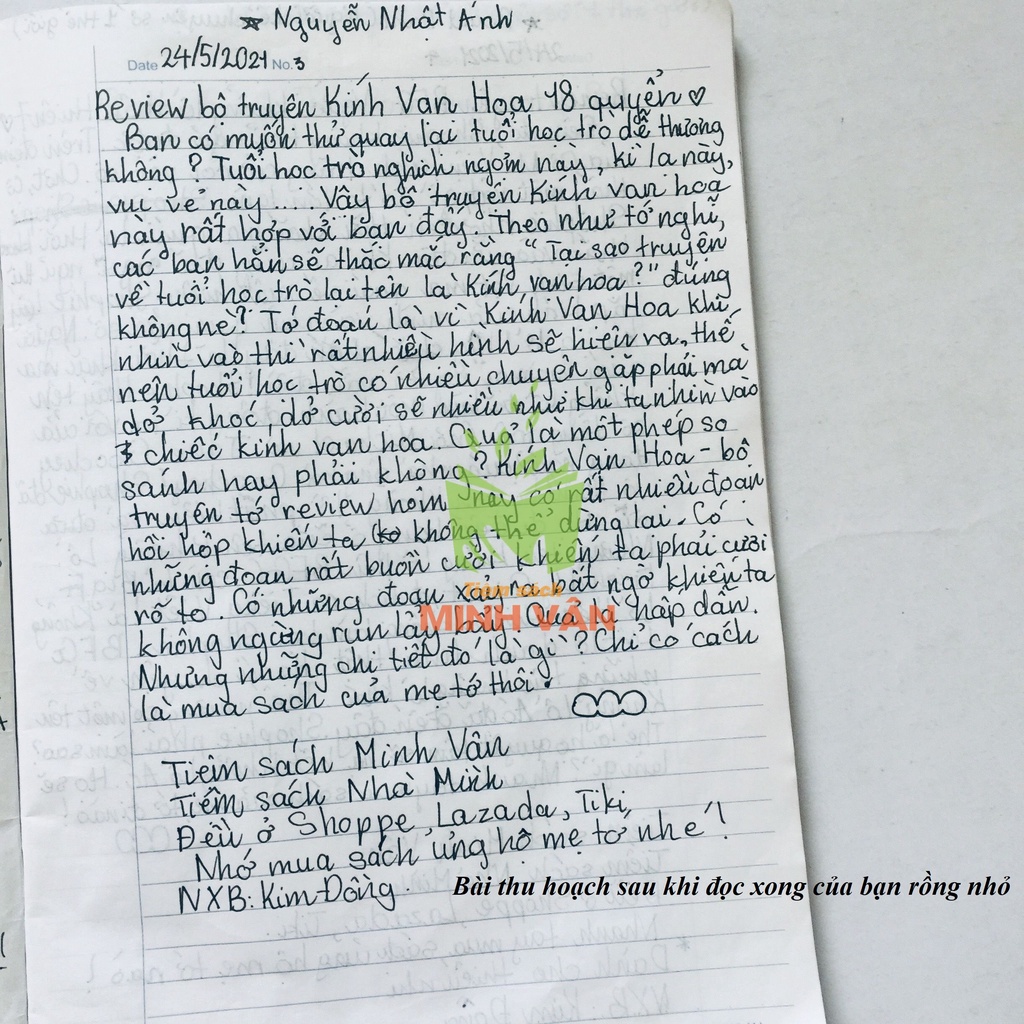 ★ Nguyễn Nhật Ánh ★
Date 24/5/2021 No. 3
Review bộ truyện Kính Vạn Hoa 18 quyển ♡
Bạn có muốn thử quay lại tuổi học trò dễ thương
không? Tuổi học trò nghịch ngợm này, kì lạ này,
vui vẻ này.... Vậy bộ truyện Kính vạn hoa
này rất hợp với bạn đấy. Theo như tớ nghĩ,
các bạn hẳn sẽ thắc mắc rằng "Tại sao truyện
về tuổi học trò lại tên là Kính vạn hoa?" đúng
không nè? Tớ đoán là vì Kính Vạn Hoa khi
nhìn vào thì rất nhiều hình sẽ hiện ra, thế
nên tuổi học trò có nhiều chuyện gặp phải mà
dở khóc, dở cười sẽ nhiều như khi ta nhìn vào
chiếc kính vạn hoa. Quả là một phép so
sánh hay phải không? Kính Vạn Hoa - bộ
truyện tớ review hôm nay có rất nhiều đoạn
hồi hộp khiến ta không thể dừng lại. Có
những đoạn rất buồn cười khiến ta phải cười
rõ to. Có những đoạn xảy ra bất ngờ khiến ta
không ngừng run lẩy bẩy! Quả là hấp dẫn.
Nhưng những chi tiết đó là gì? Chỉ có cách
là mua sách của mẹ tớ thôi!
Tiệm sách
MINH VÂN
Tiệm sách Minh Vân
Tiệm sách Nhà Mình
Đều ở Shoppe, Lazada, Tiki,
Nhớ mua sách ủng hộ mẹ tớ nhé!
NXB: Kim Đồng.
Bài thu hoạch sau khi đọc xong của bạn rồng nhỏ